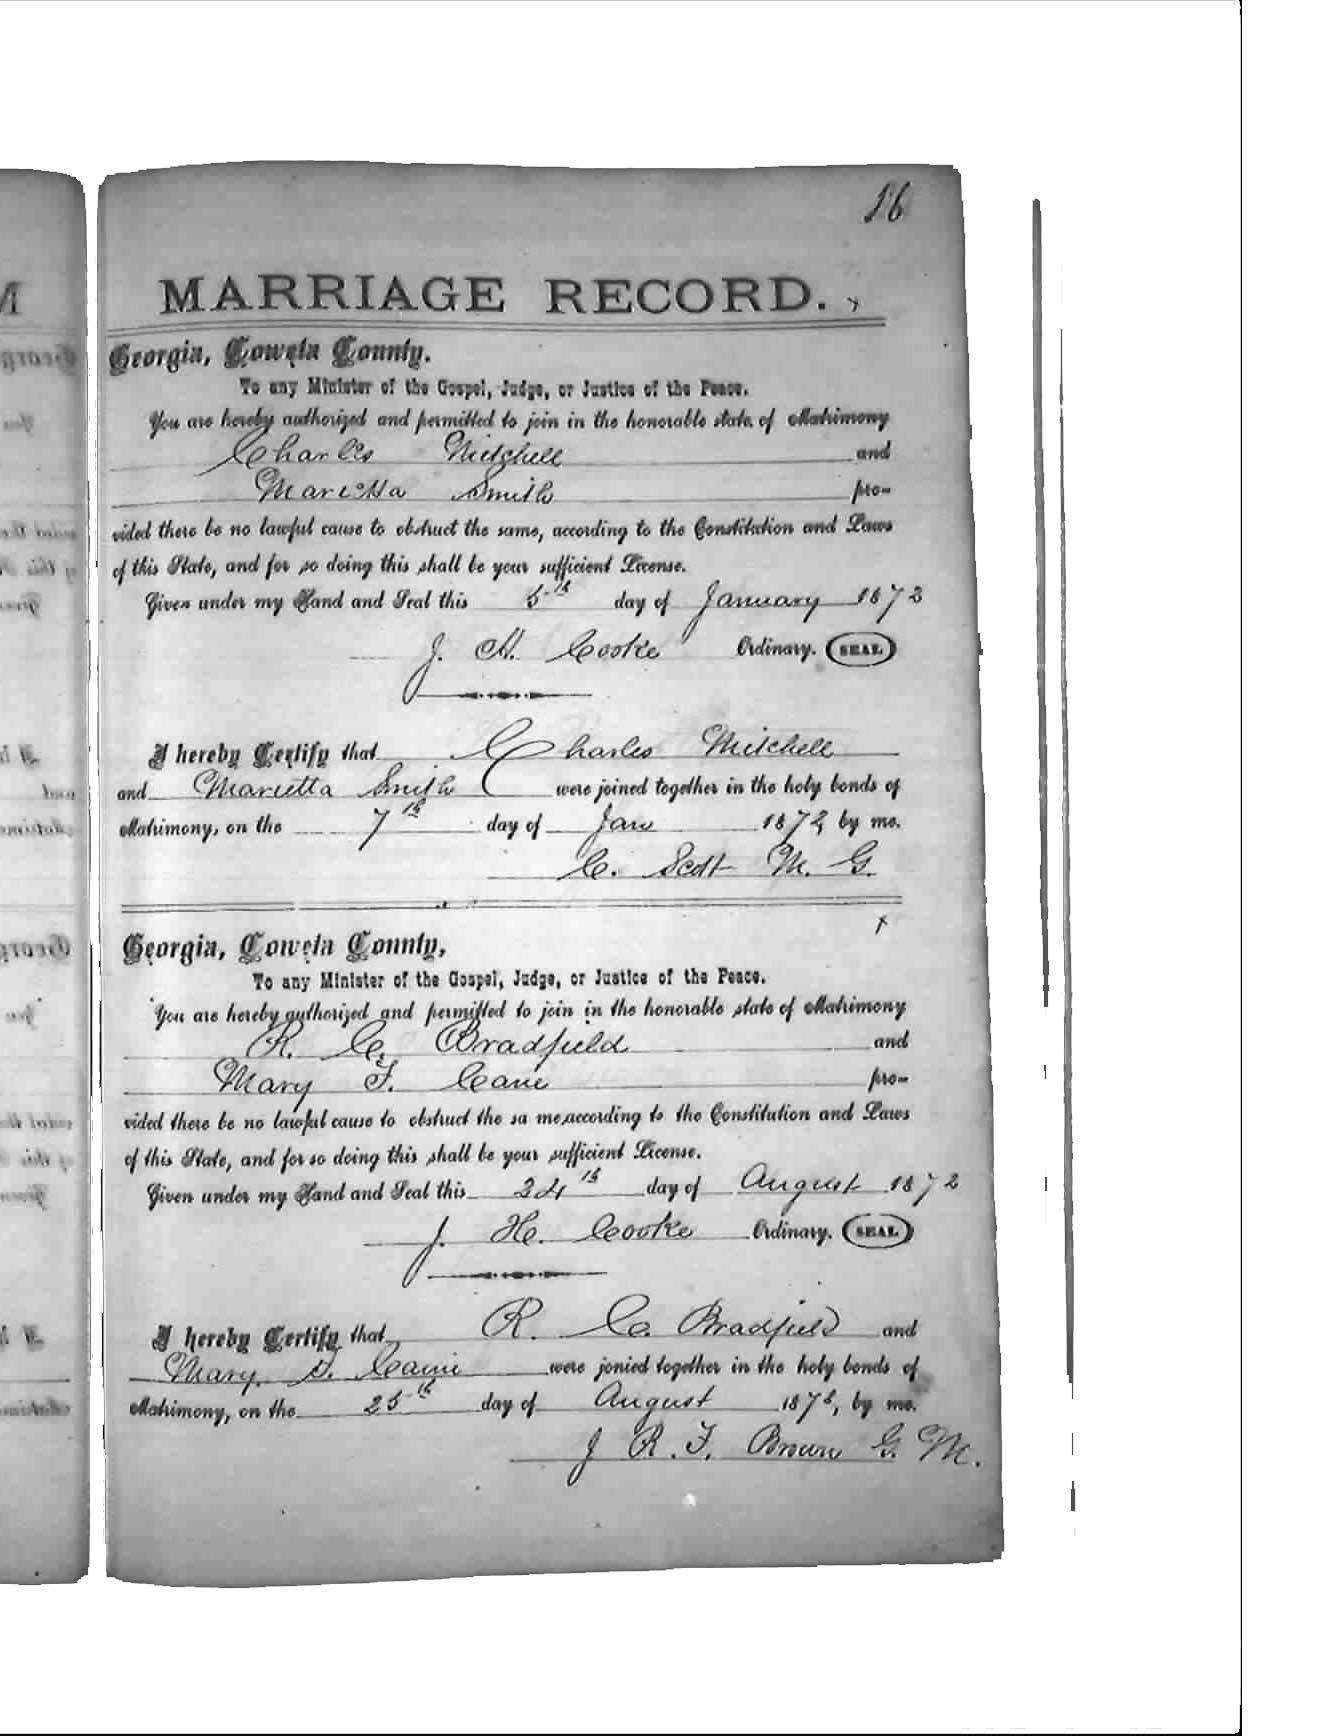 16
MARRIAGE RECORD.
Georgia, Coweta County.
To any Minister of the Gospel, Judge, or Justice of the Peace.
You are hereby authorized and permitted to join in the honorable state of Matrimony
Charles Mitchell and
Marietta Smith pro-
vided there be no lawful cause to obstruct the same, according to the Constitution and Laws
of this State, and for so doing this shall be your sufficient License.
Given under my Hand and Seal this 5th day of January 1872
J. H. Cooke Ordinary. SEAL
I hereby Certify that Charles Mitchell
and Marietta Smith were joined together in the holy bonds of
Matrimony, on the 7th day of Jan 1872, by me.
C. Scott M. G.
Georgia, Coweta County,
To any Minister of the Gospel, Judge, or Justice of the Peace.
You are hereby authorized and permitted to join in the honorable state of Matrimony
R. C. Bradfield and
Mary F. Cane pro-
vided there be no lawful cause to obstruct the sa me, according to the Constitution and Laws
of this State, and for so doing this shall be your sufficient License.
Given under my Hand and Seal this 24th day of August 1872
J. H. Cooke Ordinary. SEAL
I hereby Certify that R. C. Bradfield and
Mary. F. were jonied together in the holy bonds of
Matrimony, on the 25th day of August 187 , by me.
J R. F. Brown G. M.